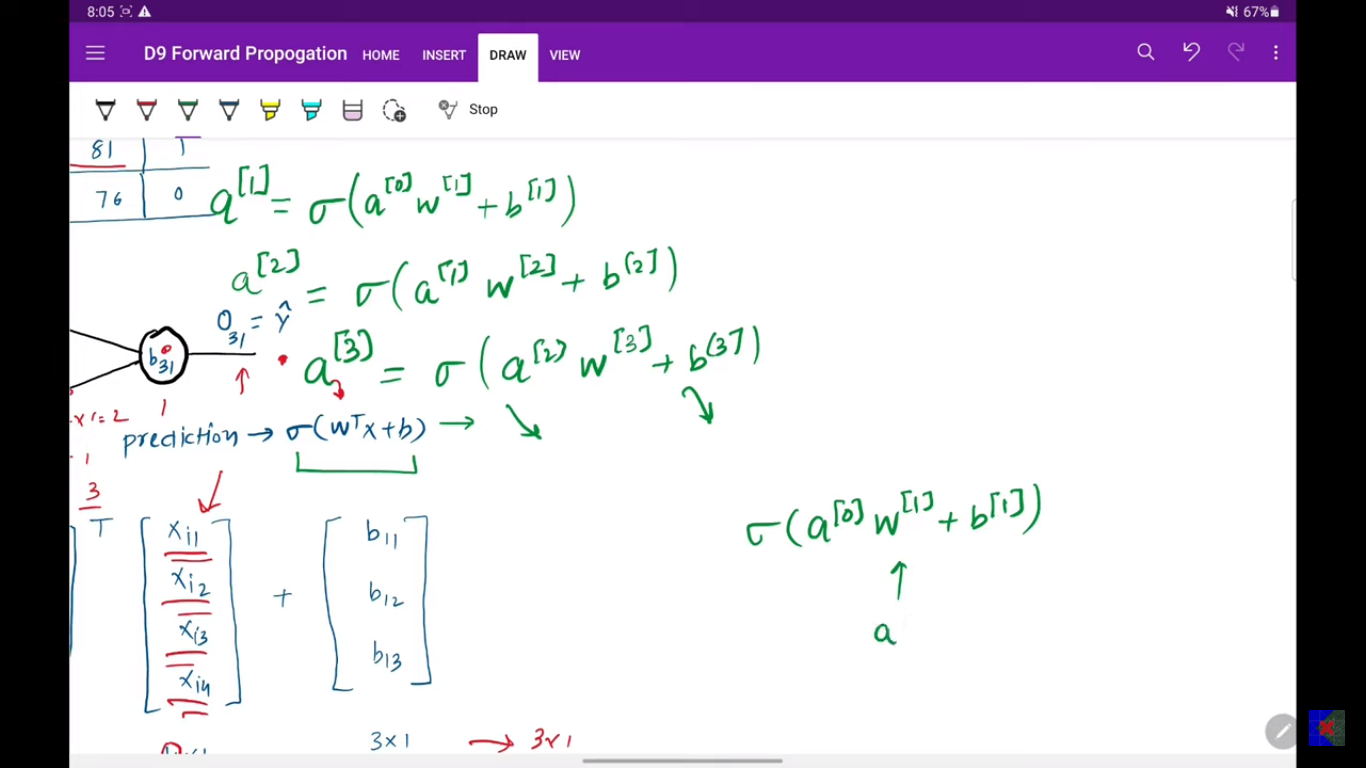 8:05 67%
D9 Forward Propogation HOME INSERT DRAW VIEW
Stop
81 1
76 0
a^[1] = σ(a^[0] w^[1] + b^[1])
a^[2] = σ(a^[1] w^[2] + b^[2])
O31 = ŷ
b31
a^[3] = σ(a^[2] w^[3] + b^[3])
x1=2 1
prediction → σ(wᵀx+b) →
1
3
T [xi1 xi2 xi3 xi4] + [b11 b12 b13]
σ(a^[0] w^[1] + b^[1])
↑
a
3×1 → 3×1